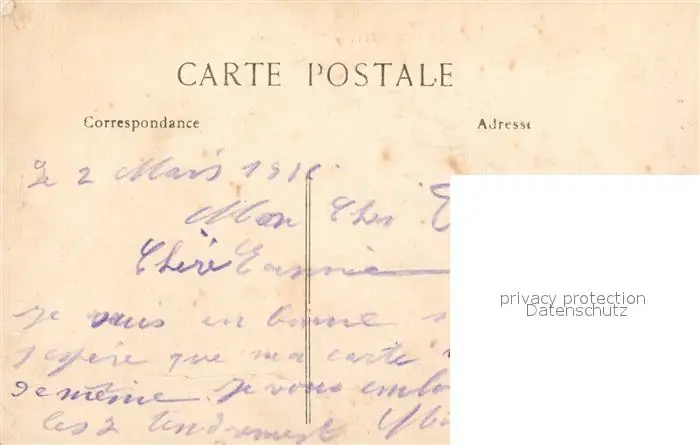 CARTE POSTALE
Correspondance
Adresse
Le 2 Mars 191
Mon Cher
Chère
Je vais en bonne
j espère que ma carte
de même Je vous emb
les 2 tendrement
privacy protection
Datenschutz